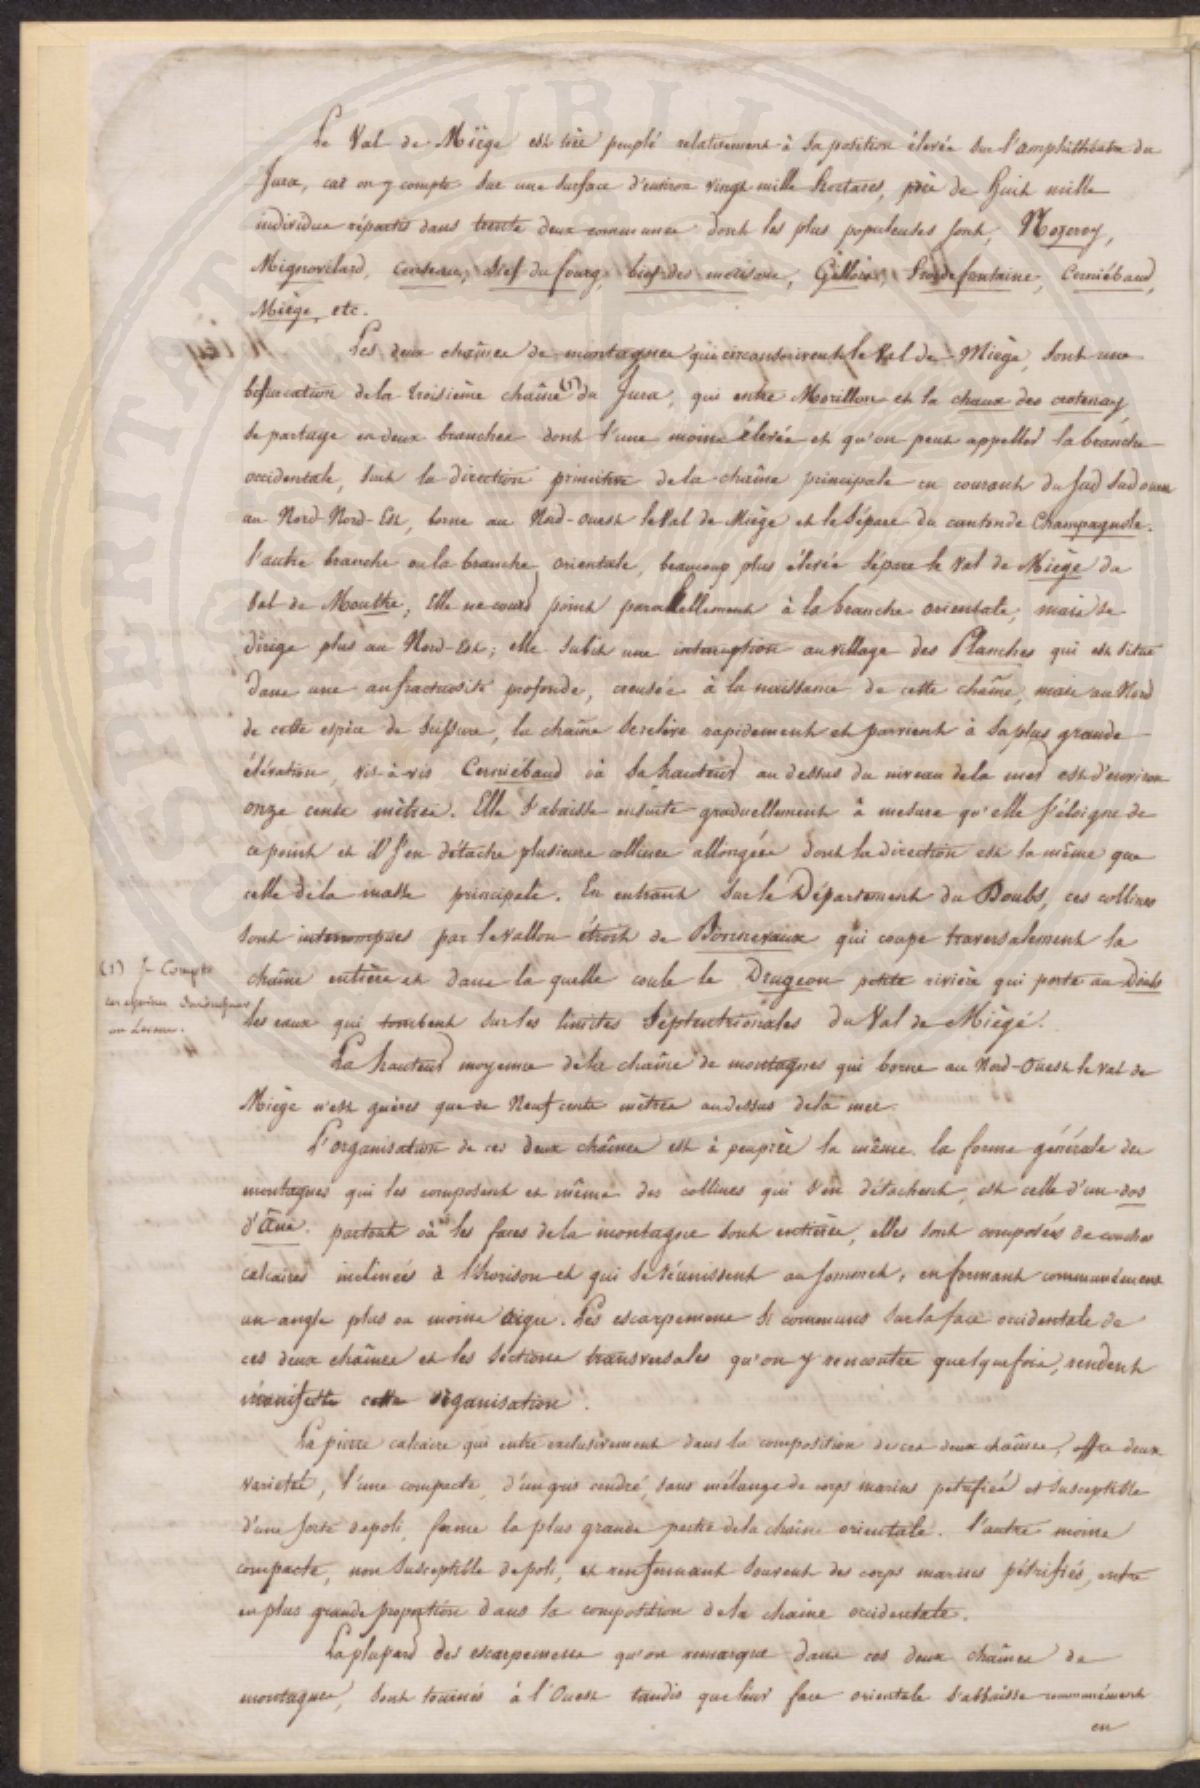 Le Val de Miège est très peuplé relativement à sa position élevée sur l'amphithéatre du
Jura, car on y compte sur une surface d'environ vingt mille hectares, près de huit mille
individus répartis dans trente deux communes dont les plus populeuses sont, Nozeroy,
Mignovilard, Censeau, bief du fourg, bief des maisons, Gillois, froidefontaine, Cerniébaud,
Miège, etc.
Les deux chaînes de montagnes qui circonscrivent le Val de Miège, sont une
bifurcation de la troisième chaîne (1) du Jura, qui entre Morillon et la chaux des crotenay,
se partage en deux branches dont l'une moins élevée et qu'on peut appeller la branche
occidentale, suit la direction primitive de la chaîne principale en courant du Sud Sud ouest
au Nord-Nord-Est, borne au Nord-ouest le Val de Miège et le sépare du canton de Champagnole.
l'autre branche ou la branche orientale, beaucoup plus élevée sépare le Val de Miège du
Val de Mouthe, Elle ne court point parallellement à la branche orientale, mais se
dirige plus au Nord-Est; elle subit une interruption au village des Planches qui est situé
dans une anfractuosité profonde, creusée à la naissance de cette chaîne, mais au Nord
de cette espèce de scissure, la chaîne se relève rapidement et parvient à sa plus grande
élévation, vis-à-vis Cerniébaud où sa hauteur au dessus du niveau de la mer est d'environ
onze cents mètres. Elle s'abaisse ensuite graduellement à mesure qu'elle s'éloigne de
ce point et il s'en détache plusieurs collines allongées dont la direction est la même que
celle de la masse principale. En entrant sur le Département du Doubs, ces collines
sont interrompues par le vallon étroit de Bonnevaux qui coupe traversalement la
chaîne entière et dans la quelle coule le Drugeon petite rivière qui porte au Doubs
les eaux qui tombent sur les limites Septentrionales du Val de Miège.
(1) Je Compte
au Levant.
La hauteur moyenne de la chaîne de montagnes qui borne au Nord-Ouest le Val de
Miège n'est guères que de Neuf cents mètres audessus de la mer.
L'organisation de ces deux chaînes est à peuprès la même. la forme générale des
montagnes qui les composent et même des collines qui s'en détachent, est celle d'un dos
d'Âne. partout où les faces de la montagne sont entières, elles sont composées de couches
calcaires inclinées à l'horison et qui se réunissent au sommet, en formant communément
un angle plus ou moins aigu. Les escarpemens si communs sur la face occidentale de
ces deux chaînes et les sections transversales qu'on y rencontre quelquefois, rendent
manifeste cette organisation.
La pierre calcaire qui entre exclusivement dans la composition de ces deux chaînes, offre deux
variétés, l'une compacte, d'un gris cendré, sans mélange de corps marins pétrifiés et susceptible
d'une sorte de poli, forme la plus grande partie de la chaîne orientale. l'autre moins
compacte, non susceptible de poli, et renfermant souvent des corps marins pétrifiés, entre
en plus grande proportion dans la composition de la chaine occidentale.
La plupart des escarpemens qu'on remarque dans ces deux chaînes de
montagnes, sont tournés à l'Ouest tandis que leur face orientale s'abbaisse communément
en